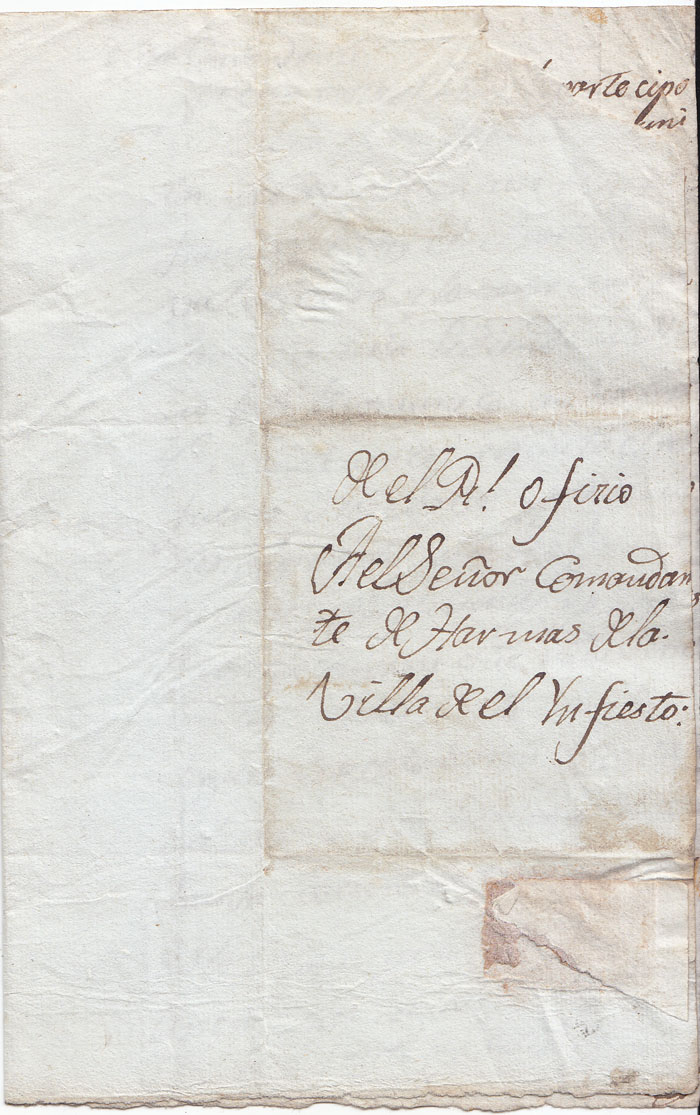 partecipo
mi
de el Rl. ofirio
Ael Señor Comandan,
te de Harmas dela
Villa de el Ynfiesto: